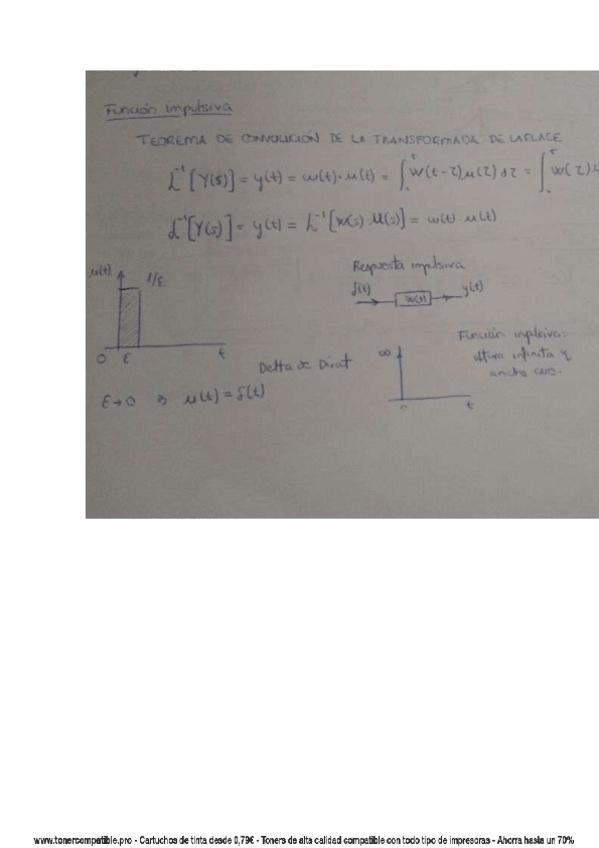 Función impulsiva
TEOREMA DE CONVOLUCIÓN DE LA TRANSFORMADA DE LAPLACE
L⁻¹[Y(s)] = y(t) = w(t)·u(t) = ∫₀ᵗ w(t-τ)u(τ)dτ = ∫₀ᵗ w(τ)
L⁻¹[Y(s)] = y(t) = L⁻¹[W(s)·U(s)] = w(t)·u(t)
Respuesta impulsiva
δ(t) W(s) y(t)
u(t) 1/ε
0 ε t
Delta de Dirat
∞
0 t
Función impulsiva:
altura infinita y
ancho cero.
ε→0 ⇒ u(t) = δ(t)
www.tonercompatible.pro - Cartuchos de tinta desde 0,79€ - Toners de alta calidad compatible con todo tipo de impresoras - Ahorra hasta un 70%